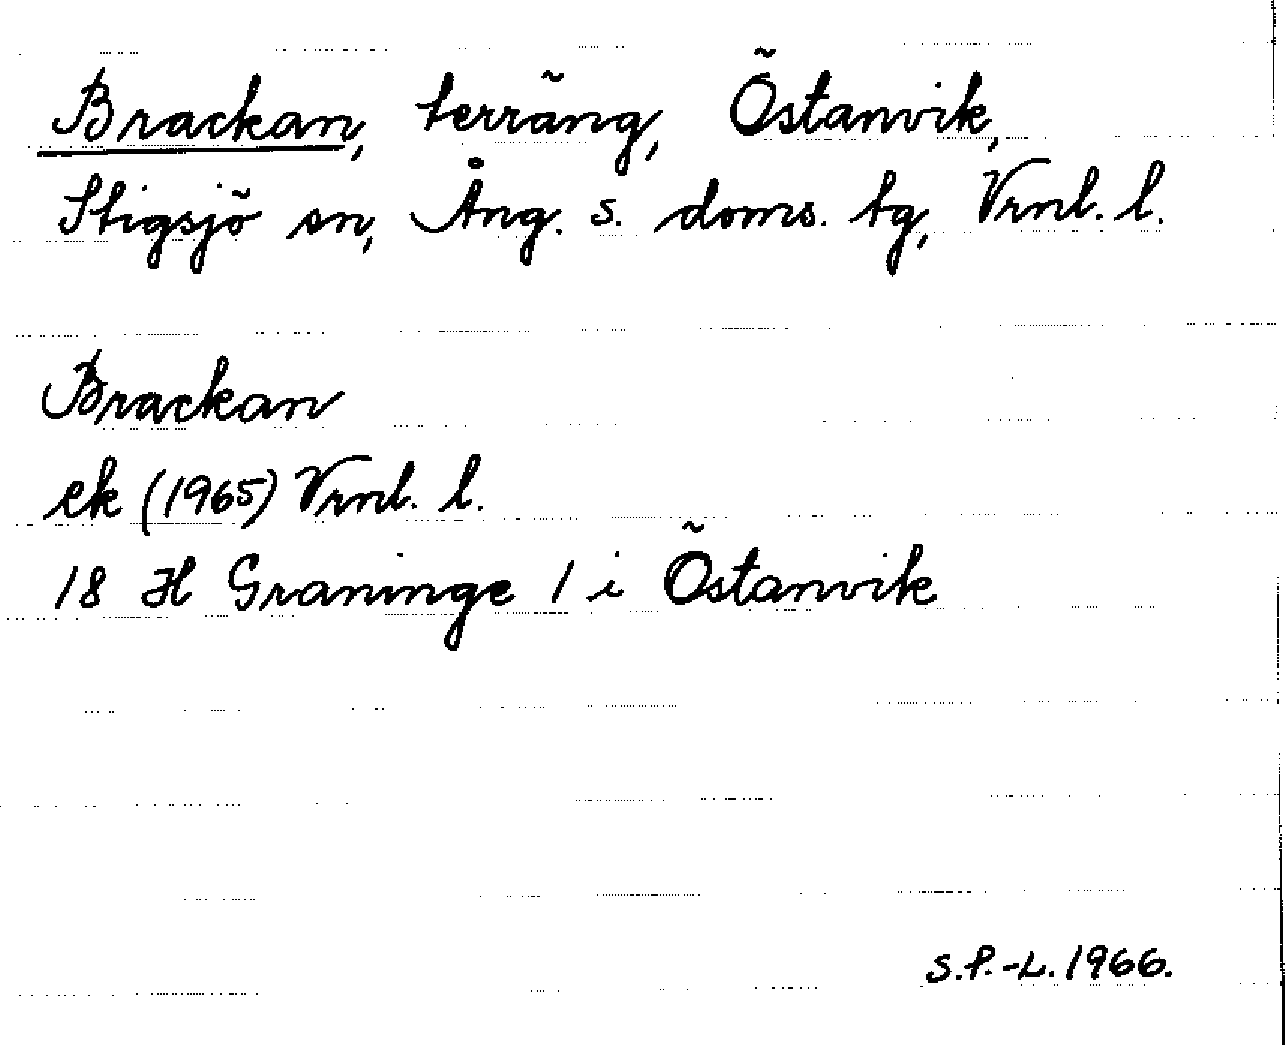 Brackan, terräng, Östanvik,
Stigsjö sn, Ång. s. doms. tg, Vrnl. l.
Brackan
ek (1965) Vrnl. l.
18 H Graninge 1 i Östanvik
S.P.-L. 1966.